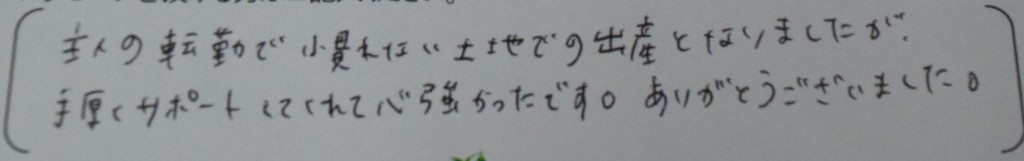 主人の転勤で小慣れない土地での出産となりましたが、
手厚くサポートしてくれて心強かったです。ありがとうございました。